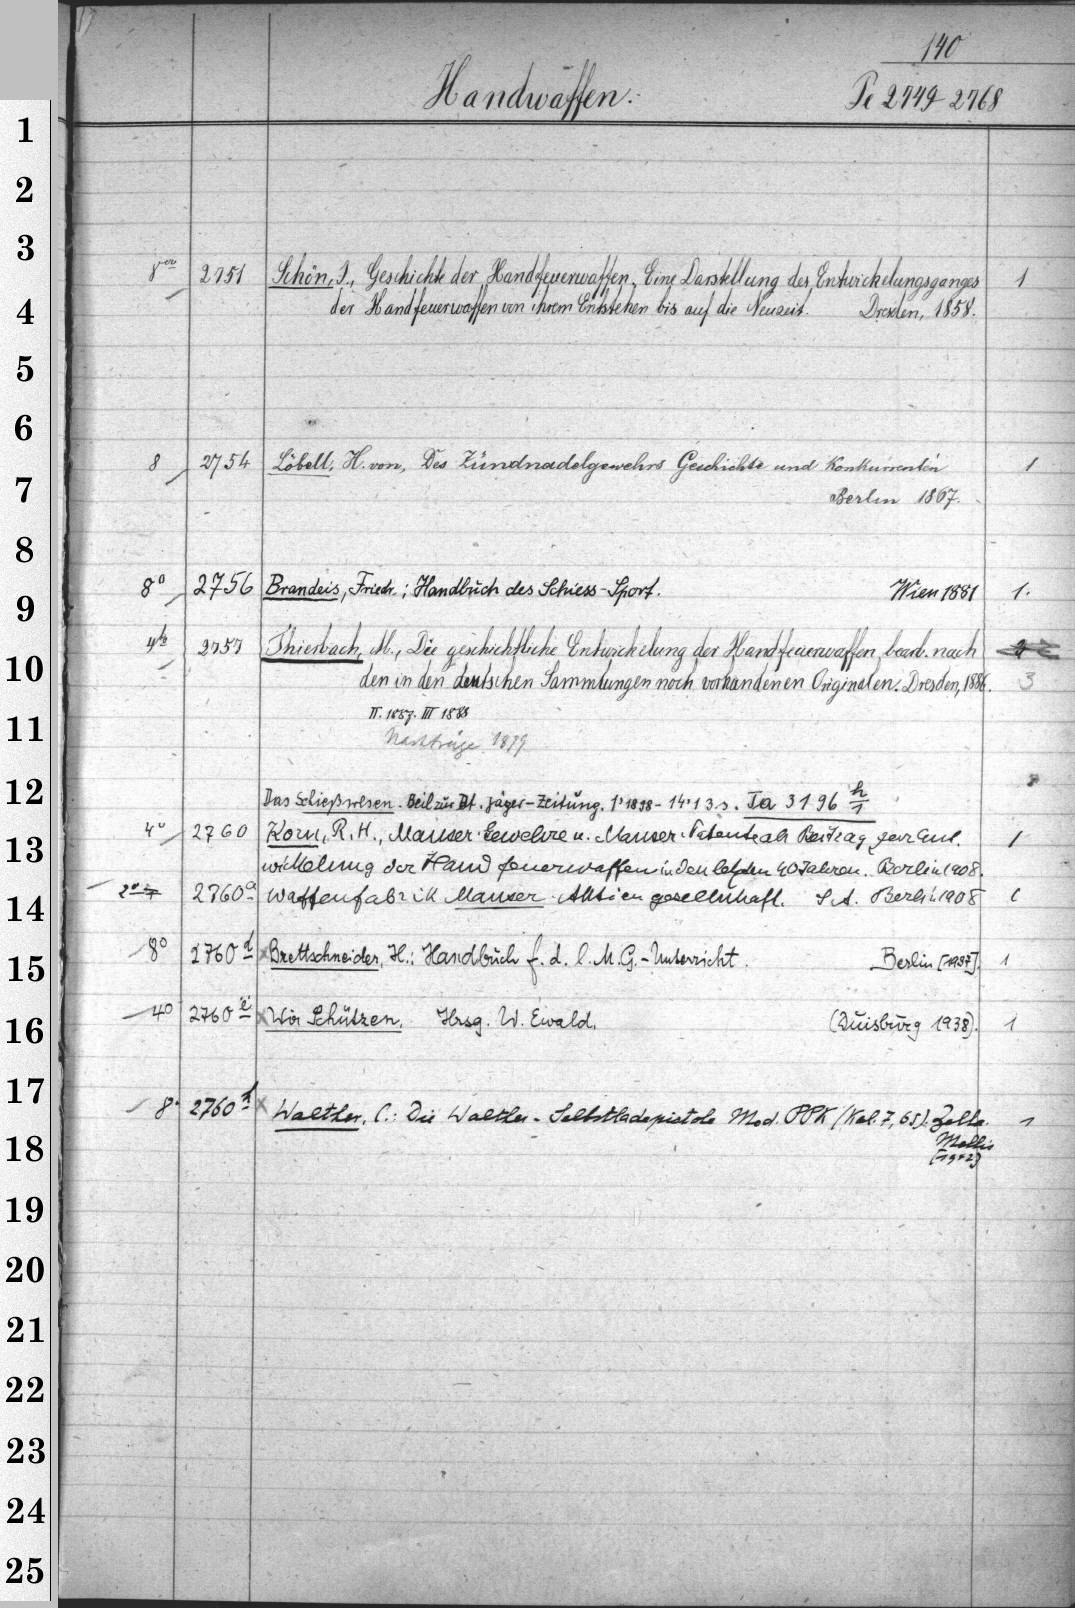 140
Handwaffen.
Pe 2749-2768
1
2
3
8vo 2751 Schön, J., Geschichte der Handfeuerwaffen. Eine Darstellung des Entwickelungsganges 1
4
der Handfeuerwaffen von ihrem Entstehen bis auf die Neuzeit. Dresden, 1858.
5
6
8 2754 Löbell, H. von, Des Zündnadelgewehrs Geschichte und Konkurrenten 1
7
Berlin 1867.
8
8° 2756 Brandeis, Friedr.; Handbuch des Schiess-Sport. Wien 1881 1.
9
4to 2757 Thierbach, M., Die geschichtliche Entwickelung der Handfeuerwaffen, bearb. nach
10
den in den deutschen Sammlungen noch vorhandenen Originalen. Dresden, 1886. 3
II. 1887. III 1888
11
Nachträge 1899
12
Das Schießwesen. Beil. zur Dt. Jäger-Zeitung. 1' 1898-14' 13 s. Ia 3196 h/1
4° 2760 Korn, R. H., Mauser-Gewehre u. Mauser-Patente als Beitrag zur Ent- 1
13
wicklung der Handfeuerwaffen in den letzten 40 Jahren. Berlin 1908.
2760a Waffenfabrik Mauser Aktiengesellschaft. S.A. Berlin 1908 1
14
8° 2760d Brettschneider, H.: Handbuch f. d. l. M.G.-Unterricht. Berlin [1937]. 1
15
4° 2760e Wir Schützen. Hrsg. W. Ewald. (Duisburg 1938). 1
16
17
8° 2760f Walther, C.: Die Walther-Selbstladepistole Mod. PPK (Kal. 7,65). Zella- 1
Mehlis
18
19
20
21
22
23
24
25